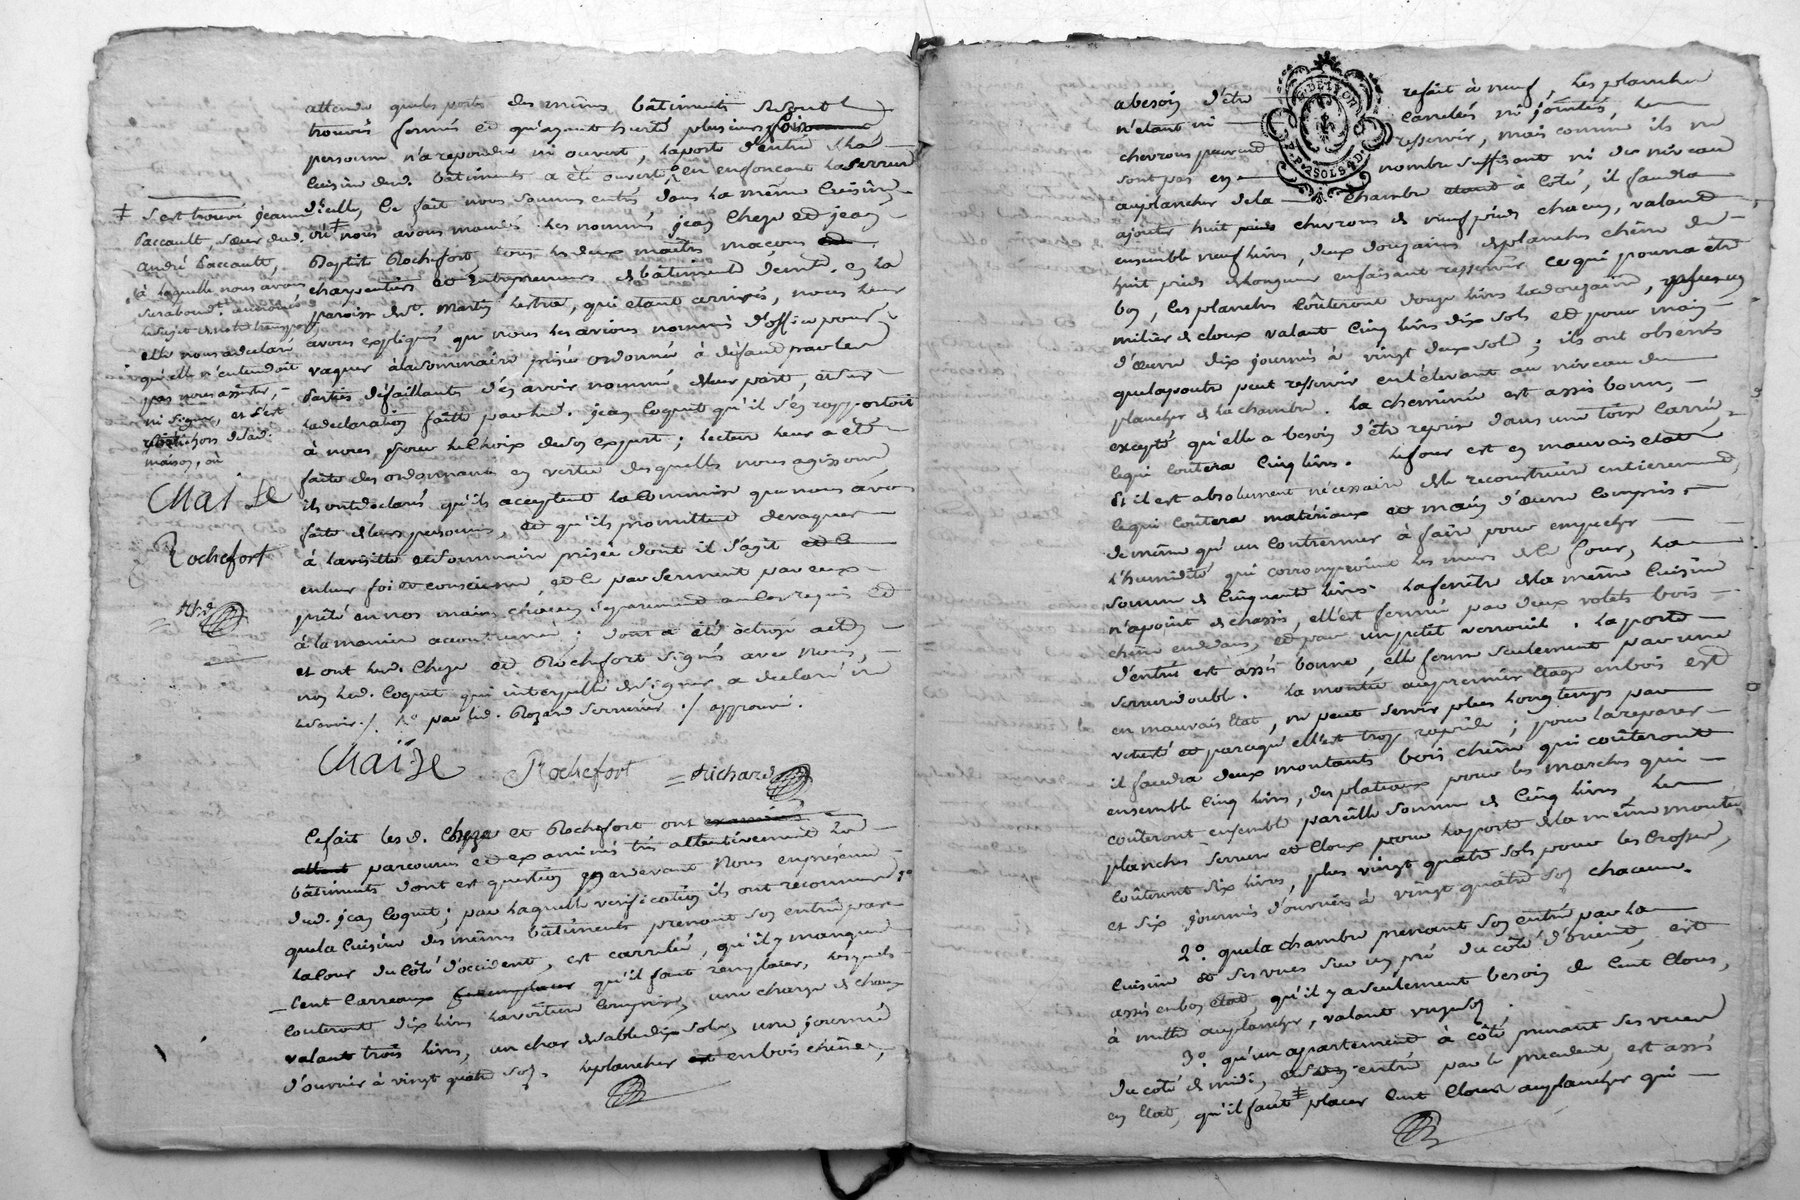 attendu que les portes des mêmes bâtiments se sont
trouvés fermés et qu'ayant heurté plusieurs fois
personne n'a repondu ni ouvert, la porte d'entrée de la
cuisine desd. bâtiments a été ouverte en enfonçant la serrure
d'icelle, ce fait nous sommes entrés dans la même cuisine
où ‡ nous avons mandés les nommés jean Cheze et jean
Baptiste Rochefort tous les deux maîtres maçons
charpentiers et entrepreneurs de bâtiments demt. en la
paroisse de st. Martin lestra, qui étant arrivés, nous leur
avons expliqués que nous les avions nommés d'office pour
vaquer à la sommaire prisée ordonnée à défaut par les
parties défaillantes d'en avoir nommé de leur part, et sur
la declaration faitte par led. jean Coquet qu'il s'en rapportoit
à nous pour le choix de son expert ; lecture leur a été
faite des ordonnances en vertu desquelles nous agissons
ils ont declaré qu'ils acceptent la commission que nous avons
faite de leurs personnes, et qu'ils promettent de vaquer
à la visitte et sommaire prisée dont il s'agit
en leur foi et conscience et le par serment par eux
prêté en nos mains chacun séparement au cas requis et
à la manière accoutumée ; dont a été octroyé acte,
et ont lesd. Cheze et Rochefort signés avec nous,
non led. Coquet qui interpellé de signer a declaré ne
le savoir ./. par led. Rozard serrurier ./. approuvé.
Chaize Rochefort Richard
‡ s'est trouvé jeanne
Paccault, sœur dud.
andré Paccault,
à laquelle nous avons
le sujet de notre transport
elle nous a declaré
qu'elle n'entendoit
pas nous assister,
ni signer et s'est
hors de lad.
maison, où
Chaize
Rochefort
Ce fait les d. Cheze et Rochefort ont
parcourus et examinés très attentivement les
bâtiments dont est question pardevant nous en présence
dud. jean Coquet ; par laquelle verification ils ont reconnu 1°
que la cuisine des mêmes bâtiments prenant son entrée par
la cour du côté d'occident, est carrelée, qu'il y manque
cent carreaux qu'il faut remplacer, lesquels
couteront dix livres la voiture comprise, une charge de chaux
valant trois livres, un char de sable dix sols, une journée
d'ouvrier à vingt quatre sols. le plancher en bois chêne,
G. DE LYON
2 SOLS 4 D.
a besoin d'être refait à neuf, les planches
n'étant ni lamelées ni jointes, les
chevrons peuvent resservir, mais comme ils ne
sont pas en nombre suffisant ni de niveau
au plancher de la chambre à côté, il faudra
ajouter huit chevrons de neuf pieds chacun, valant
ensemble neuf livres, deux douzaines de planches chêne de
huit pieds de longueur en faisant resservir ce qui pourra être
bon, les planches coûteront douze livres la douzaine,
milier de cloux valant cinq livres dix sols et pour main
d'œuvre dix journées à vingt deux sols ; ils ont observés
que la poutre peut resservir en l'élevant au niveau du
plancher de la chambre. la cheminée est assés bonne,
excepté qu'elle a besoin d'être reprise dans une toise carrée,
ce qui coûtera cinq livres. le four est en mauvais etat
et il est absolument nécessaire de le reconstruire entierement,
ce qui coûtera matériaux et main d'œuvre compris,
de même qu'un contremur à faire pour empecher
l'humidité qui corromproient les murs de le four, la
somme de cinquante livres. la fenêtre de la même cuisine
n'a point de chassis, elle est fermée par deux volets bois
chêne en dedans, et par un petit verrouil. la porte
d'entrée est assés bonne, elle ferme seulement par une
serrure double. la montée au premier etage en bois est
en mauvais etat, ne peut servir plus longtemps par
vetusté et parcequ'elle est trop rapide ; pour la reparer
il faudra deux montants bois chêne qui coûteront
ensemble cinq livres, des plateaux pour les marches qui
coûteront ensemble pareille somme de cinq livres, les
planches serrure et cloux pour la porte de la même montée
coûteront six livres, plus vingt quatre sols pour les crosses,
et six journées d'ouvriers à vingt quatre sols chacune.
2° que la chambre prenant son entrée par la
cuisine et ses vues sur un pré du côté d'orient, est
assés en bon etat, qu'il y a seulement besoin de cent clous,
à mettre au plancher, valant
3° qu'un appartement à côté prenant ses vues
du côté de midi, et son entrée par le precedent, est assés
en etat, qu'il faut ‡ placer cent cloux au plancher qui